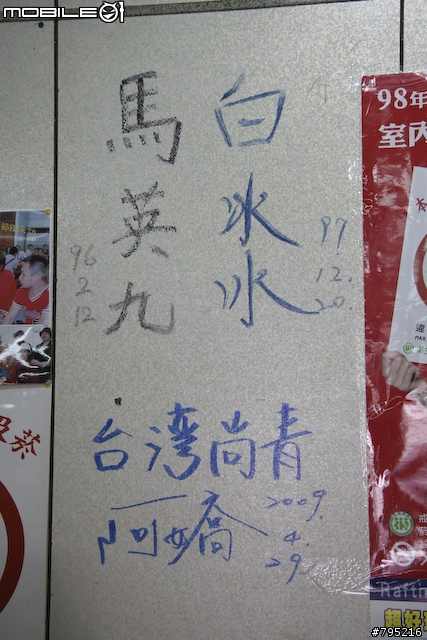 MOBILE01
白冰冰
97.
12.
20.
馬英九
96
2
12
台灣尚青
阿嬌
2009.
4.
29.
98年
室內
吸菸
#795216